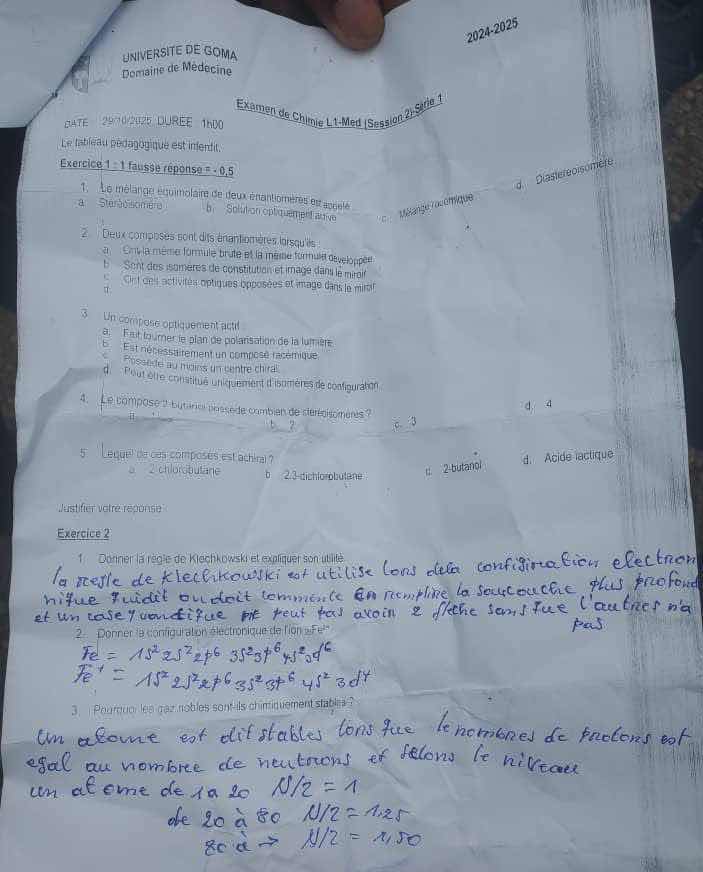 2024-2025
UNIVERSITE DE GOMA
Domaine de Médecine
Examen de Chimie L1-Med (Session 2)-Série 1
DATE : 29/10/2025 DUREE : 1h00
Le tableau pédagogique est interdit.
Exercice 1 : 1 fausse réponse = - 0,5
1. Le mélange équimolaire de deux énantiomères est appelé
a. Stéréoisomère b. Solution optiquement active c. Mélange racémique d. Diastéréoisomère
2. Deux composés sont dits énantiomères lorsqu'ils
a. Ont la même formule brute et la même formule développée
b. Sont des isomères de constitution et image dans le miroir
c. Ont des activités optiques opposées et image dans le miroir
d.
3. Un composé optiquement actif
a. Fait tourner le plan de polarisation de la lumière
b. Est nécessairement un composé racémique
c. Possède au moins un centre chiral
d. Peut être constitué uniquement d'isomères de configuration
4. Le composé 2-butanol possède combien de stéréoisomères ?
b. 2 c. 3 d. 4
5. Lequel de ces composés est achiral ?
a. 2-chlorobutane b. 2,3-dichlorobutane c. 2-butanol d. Acide lactique
Justifier votre réponse
Exercice 2
1. Donner la règle de Klechkowski et expliquer son utilité.
la regle de Klechkowski est utilise lors dela configiration electron
nique quidit ondoit commence en remplire la souscouche plus profond
et un case quantique peut pas avoir 2 fleche sans que l'autres n'a
pas
2. Donner la configuration électronique de l'ion
Fe = 1S² 2S² 2p⁶ 3S² 3p⁶ 4S² 3d⁶
Fe⁺ = 1S² 2S² 2p⁶ 3S² 3p⁶ 4S² 3d⁴
3. Pourquoi les gaz nobles sont-ils chimiquement stables ?
Un atome est dit stables lors que le nombres de protons est
egal au nombre de neutrons et selons le niveau
un atome de 1 a 20 N/2 = 1
de 20 à 80 N/2 = 1,25
80 à → N/2 = 1,50